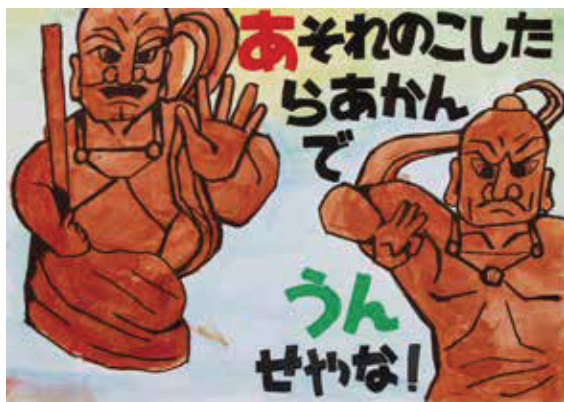 あそれのこした
らあかん
で
うん
せやな！